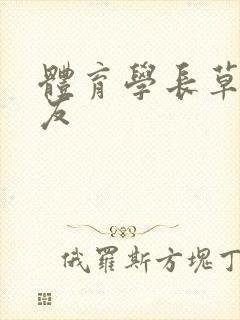 體育學長草
友
俄羅斯方塊丁